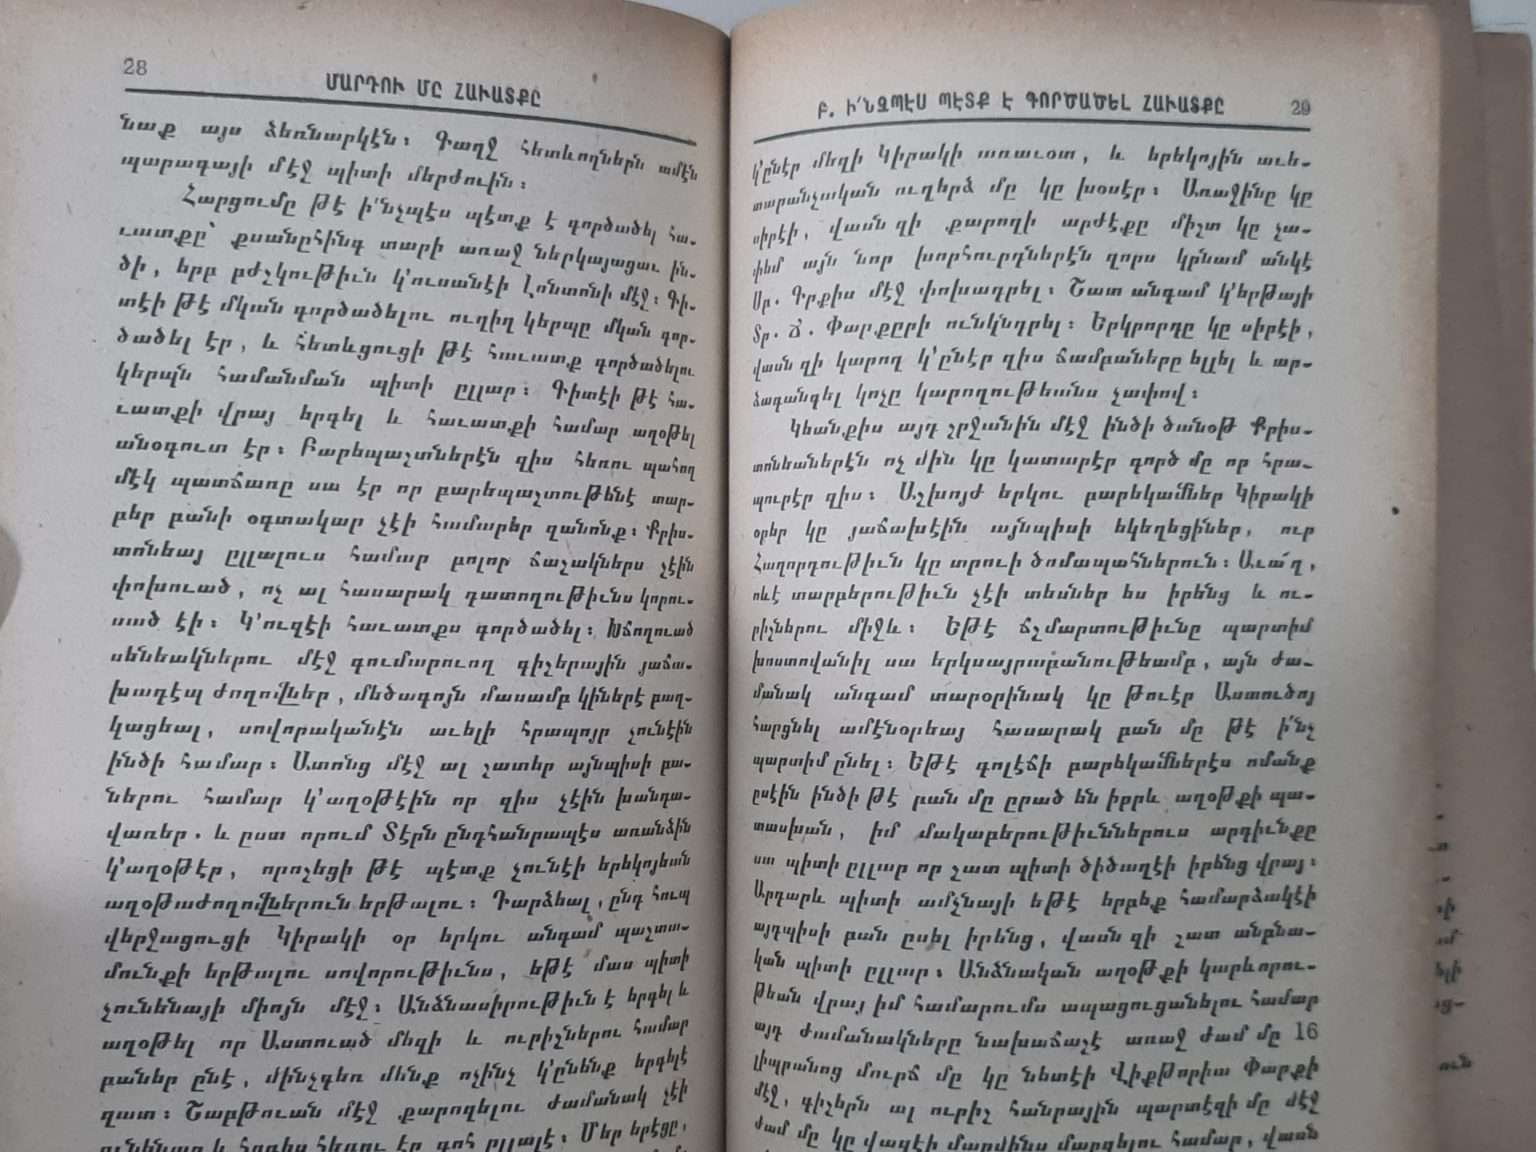 28
ՄԱՐԴՈՒ ՄԸ ՀԱՒԱՏՔԸ
նաք այս ձեռնարկէն։ Գաղջ հետևողներն ամէն
պարագայի մէջ պիտի մերժուին։
Հարցումը թէ ի՛նչպէս պէտք է գործածել հա-
ւատքը՝ քսանըհինգ տարի առաջ ներկայացաւ ին-
ծի, երբ բժշկութիւն կ՚ուսանէի Լոնտոնի մէջ։ Գի-
տէի թէ մկան գործածելու ուղիղ կերպը մկան գոր-
ծածել էր, և հետևցուցի թէ հաւատք գործածելու
կերպն համանման պիտի ըլլար։ Գիտէի թէ հա-
ւատքի վրայ երգել և հաւատքի համար աղօթել
անօգուտ էր։ Բարեպաշտներէն զիս հեռու պահող
մէկ պատճառը սա էր որ բարեպաշտութենէ տար-
բեր բանի օգտակար չէի համարեր զանոնք։ Քրիս-
տոնեայ ըլլալուս համար բոլոր ճաշակներս չէին
փոխուած, ոչ ալ հասարակ դատողութիւնս կորու-
սած էի։ Կ՚ուզէի հաւատքս գործածել։ Խճողուած
սենեակներու մէջ գումարուող գիշերային յաճա-
խադէպ ժողովներ, մեծագոյն մասամբ կիներէ բաղ-
կացեալ, սովորականէն աւելի հրապոյր չունէին
ինծի համար։ Ատոնց մէջ ալ շատեր այնպիսի բա-
ներու համար կ՚աղօթէին որ զիս չէին խանդա-
վառեր. և ըստ որում Տէրն ընդհանրապէս առանձին
կ՚աղօթէր, որոշեցի թէ պէտք չունէի երեկոյեան
աղօթաժողովներուն երթալու։ Դարձեալ, ընդ հուպ
վերջացուցի Կիրակի օր երկու անգամ պաշտա-
մունքի երթալու սովորութիւնս, եթէ մաս պիտի
չունենայի միոյն մէջ։ Անձնասիրութիւն է երգել և
աղօթել որ Աստուած մեզի և ուրիշներու համար
բաներ ընէ, մինչդեռ մենք ոչինչ կ՚ընենք երգելէ
զատ։ Շաբթուան մէջ քարոզելու ժամանակ չէի
ունենար և հոգիս հեռու էր գոհ ըլլալէ։ Մեր երէցը,
Բ. Ի՛ՆՉՊԷՍ ՊԷՏՔ Է ԳՈՐԾԱԾԵԼ ՀԱՒԱՏՔԸ
29
կ՚ընէր մեզի Կիրակի առաւօտ, և երեկոյին աւե-
տարանչական ուղերձ մը կը խօսէր։ Առաջինը կը
սիրէի, վասն զի քարոզի արժէքը միշտ կը չա-
փեմ այն նոր խորհուրդներէն զորս կրնամ անկէ
Սր. Գրքիս մէջ փոխադրել։ Շատ անգամ կ՚երթայի
Տր. Ճ. Փարքըրի ունկնդրել։ Երկրորդը կը սիրէի,
վասն զի կարող կ՚ընէր զիս ճամբաները ելլել և ար-
ձագանգել կոչը կարողութեանս չափով։
Կեանքիս այդ շրջանին մէջ ինծի ծանօթ Քրիս-
տոնեաներէն ոչ մին կը կատարէր գործ մը որ հրա-
պուրէր զիս։ Աշխոյժ երկու բարեկամներ Կիրակի
օրեր կը յաճախէին այնպիսի եկեղեցիներ, ուր
Հաղորդութիւն կը տրուի ծոմապահներուն։ Աւա՜ղ,
ոևէ տարբերութիւն չէի տեսներ ես իրենց և ու-
րիշներու միջև։ Եթէ ճշմարտութիւնը պարտիմ
խոստովանիլ սա երկսայրաբանութեամբ, այն ժա-
մանակ անգամ տարօրինակ կը թուէր Աստուծոյ
հարցնել ամէնօրեայ հասարակ բան մը թէ ի՛նչ
պարտիմ ընել։ Եթէ գոլէճի բարեկամներէս ոմանք
ըսէին ինծի թէ բան մը ըրած են իբրև աղօթքի պա-
տասխան, իմ մակաբերութիւններուս արդիւնքը
սա պիտի ըլլար որ շատ պիտի ծիծաղէի իրենց վրայ։
Արդարև պիտի ամչնայի եթէ երբեք համարձակէի
այդպիսի բան ըսել իրենց, վասն զի շատ անբնա-
կան պիտի ըլլար։ Անձնական աղօթքի կարևորու-
թեան վրայ իմ համարումս ապացուցանելու համար
այդ ժամանակները նախաճաշէ առաջ ժամ մը 16
լիպրանոց մուրճ մը կը նետէի Վիքթորիա Փարքի
մէջ, գիշերն ալ ուրիշ հանրային պարտէզի մը մէջ
ժամ մը կը վազէի մարմինս մարզելու համար, վասն